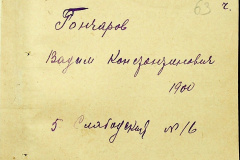 63 ч.
Гончаров
Вадим Константинович
1900
5 Слободская № 16